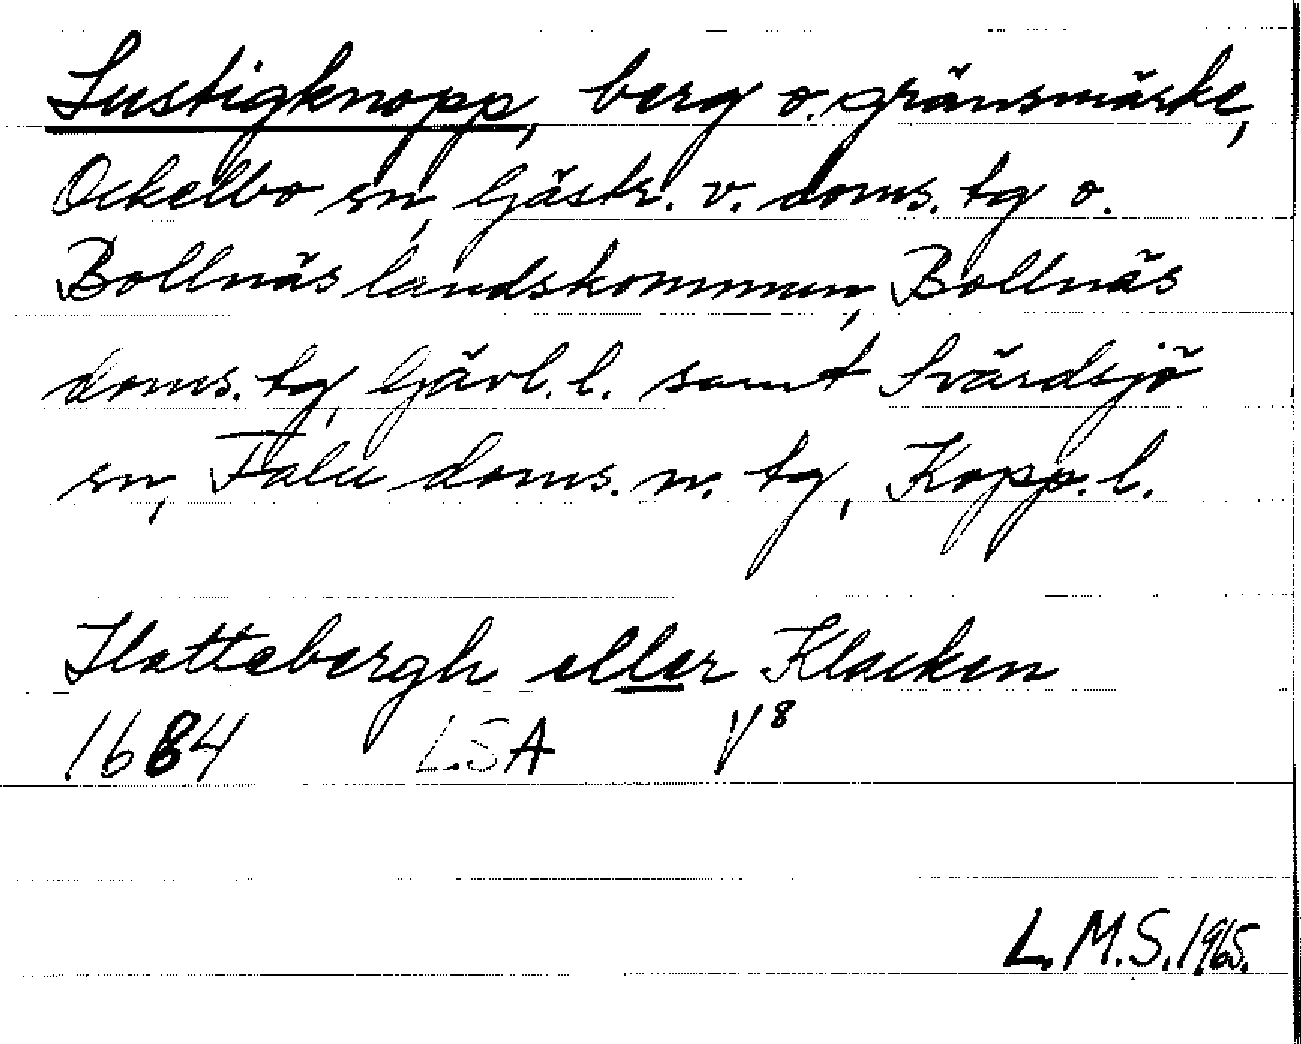 Lustigknopp, berg o. gränsmärke,
Ockelbo sn, Gästr. v. doms. tg o.
Bollnäs landskommun, Bollnäs
doms. tg, Gävl. l. samt Svärdsjö
sn, Falu doms. n. tg, Kopp. l.
Hattebergh eller Klacken
1684 LSA V8
L.M.S. 1965.